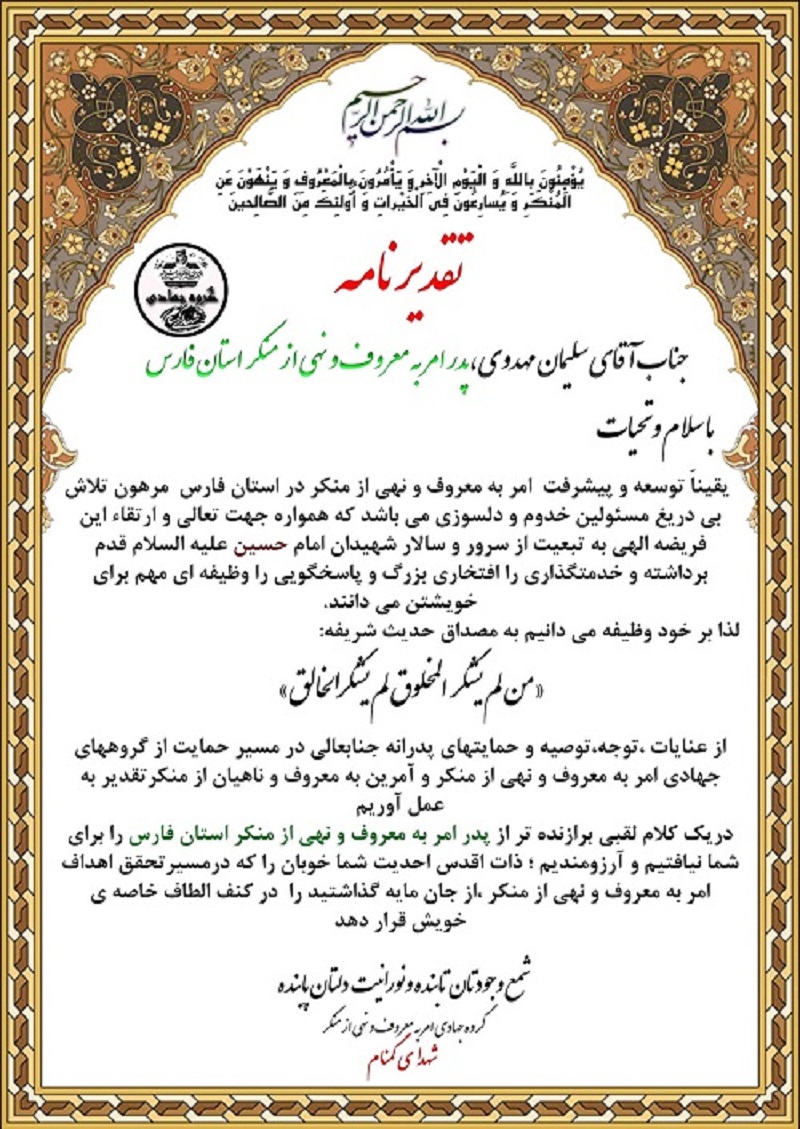 بسم الله الرحمن الرحیم
يُؤْمِنُونَ بِاللَّهِ وَ الْيَوْمِ الْآخِرِ وَ يَأْمُرُونَ بِالْمَعْرُوفِ وَ يَنْهَوْنَ عَنِ
الْمُنْكَرِ وَ يُسارِعونَ فِی الْخَيْراتِ وَ أُولئِكَ مِنَ الصَّالِحينَ
تقدیر نامه
گروه جهادی
جناب آقای سلیمان مهدوی،پدر امر به معروف و نهی از منکر استان فارس
با سلام و تحیات
یقیناً توسعه و پیشرفت امر به معروف و نهی از منکر در استان فارس مرهون تلاش
بی دریغ مسئولین خدوم و دلسوزی می باشد که همواره جهت تعالی و ارتقاء این
فریضه الهی به تبعیت از سرور و سالار شهیدان امام حسین علیه السلام قدم
برداشته و خدمتگذاری را افتخاری بزرگ و پاسخگویی را وظیفه ای مهم برای
خویشتن می دانند.
لذا بر خود وظیفه می دانیم به مصداق حدیث شریفه:
«من لم یشکر المخلوق لم یشکر الخالق»
از عنایات ،توجه،توصیه و حمایتهای پدرانه جنابعالی در مسیر حمایت از گروههای
جهادی امر به معروف و نهی از منکر و آمرین به معروف و ناهیان از منکر تقدیر به
عمل آوریم
دریک کلام لقبی برازنده تر از پدر امر به معروف و نهی از منکر استان فارس را برای
شما نیافتیم و آرزومندیم ؛ ذات اقدس احدیت شما خوبان را که درمسیرتحقق اهداف
امر به معروف و نهی از منکر ،از جان مایه گذاشتید را در کنف الطاف خاصه ی
خویش قرار دهد
شمع وجودتان تابنده و نورانیت دلتان پاینده
گروه جهادی امر به معروف و نهی از منکر
شهدای گمنام